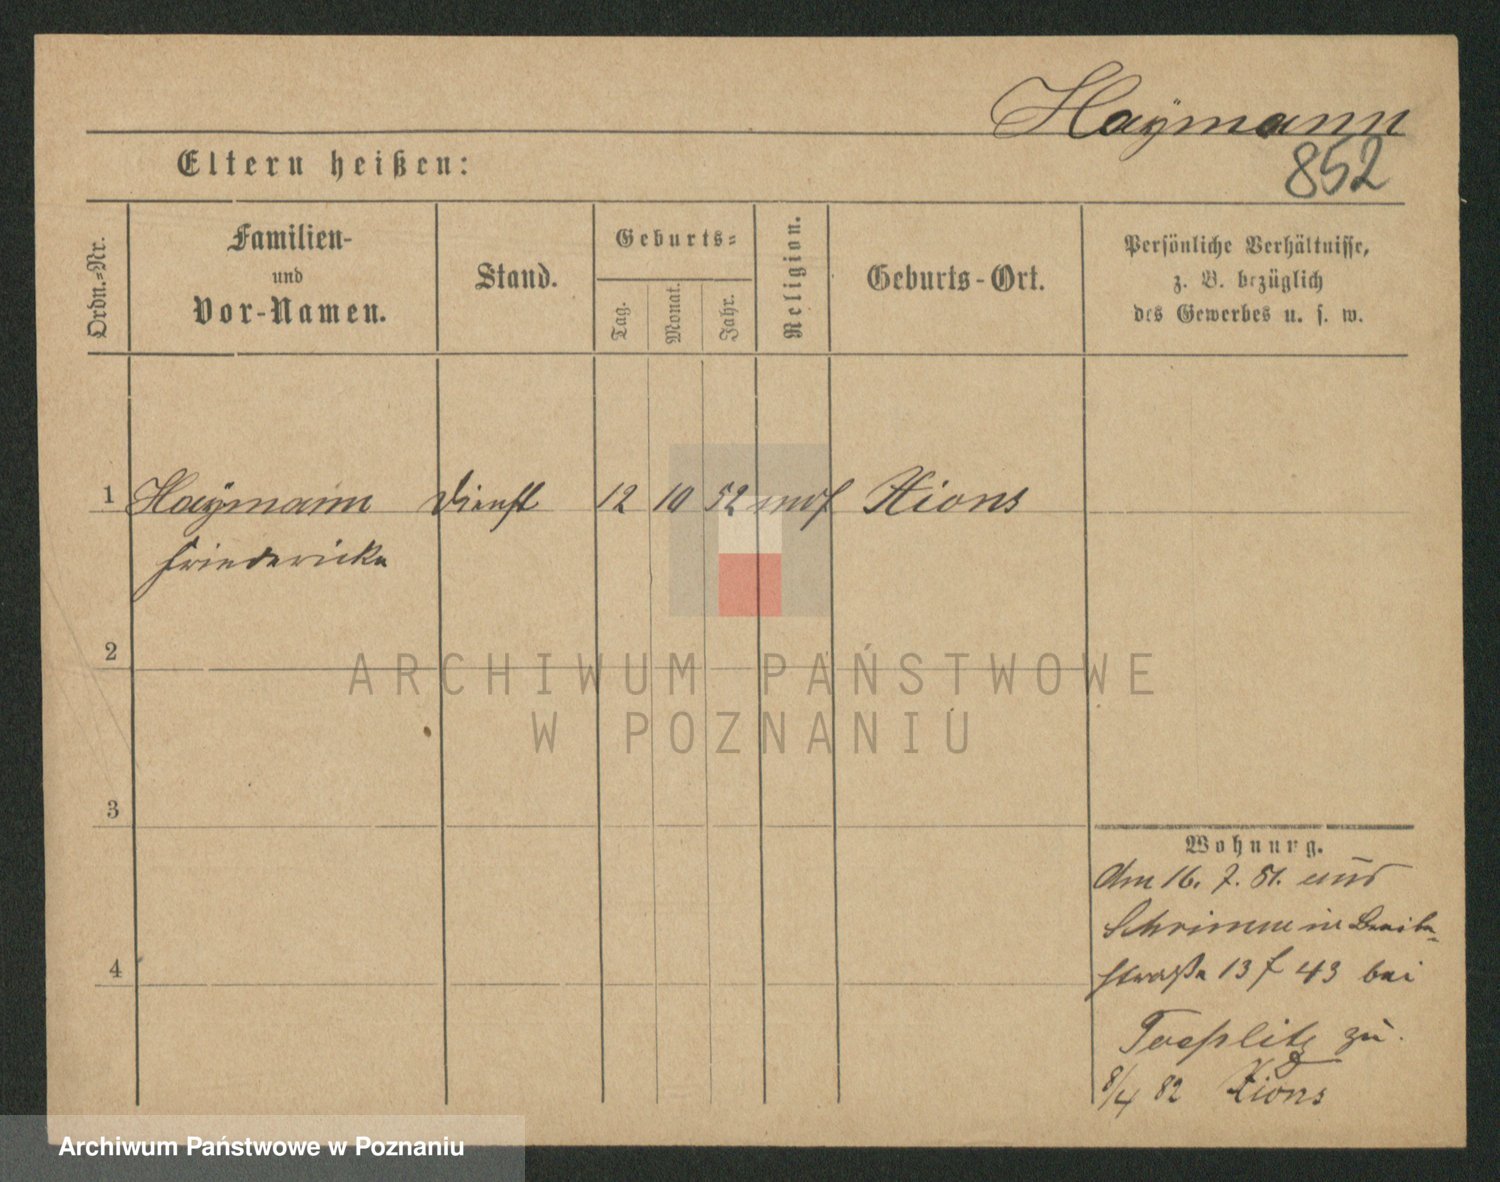 Haÿmann
852
Eltern heißen:
Ordn.-Nr.
Familien-
und
Vor-Namen.
Stand.
Geburts-
Tag.
Monat.
Jahr.
Religion.
Geburts-Ort.
Persönliche Verhältnisse,
z. B. bezüglich
des Gewerbes u. s. w.
1 Haÿmann Dienst 12 10 52 mos Xions
Friedericke
2
ARCHIWUM PAŃSTWOWE
W POZNANIU
3
4
Wohnung.
Am 16. 7. 81. aus
Schrimm in Breite-
straße 13 f 43 bei
Toeplitz zu.
8/4 82 Xions
Archiwum Państwowe w Poznaniu